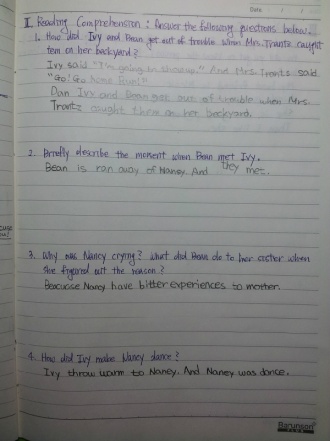 Date
I. Reading Comprehension : Answer the following questions below.
1. How did Ivy and Bean get out of trouble when Mrs. Trantz caught
tem on her backyard?
Ivy said "I'm going to throw up." And Mrs Trants said
"Go! Go Home Run!"
Dan Ivy and Bean got out of trouble when Mrs.
Trantz caught them on her backyard.
2. Briefly describe the moment when Bean met Ivy.
Bean is ran away of Nancy. And they met.
3. Why was Nancy crying? What did Bean do to her sister when
she figured out the reason?
Beacuose Nancy have bitter experiences to mother.
4. How did Ivy make Nancy dance?
Ivy throw warm to Nancy. And Nancy was dance.
Barunson